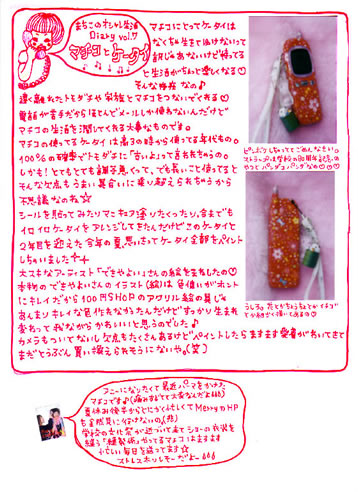 まちこのオシャレ生活
Diary vol.7
マチコとケータイ
マチコにとってケータイは
なくちゃ生きて行けないって
訳じゃあないけど持ってる
と生活がちょっと楽しくなる♡
そんな存在なの♪
遠く離れたトモダチや家族とマチコをつないでくれる♡
電話が苦手だからほとんどメールしか使わないんだけど
マチコの生活を潤してくれる大事なものです。
マチコの使ってるケータイは高3の時から使ってる年代もの。
100%の確率でトモダチに「古いよ」って言われちゃうの。
しかも!とてもとても調子悪くって、でも長いこと使ってると
そんな欠点もうまい具合いに乗り越えられちゃうから
不思議なのね☆
シールを貼ってみたりマニキュア塗りたくったり、今までも
イロイロケータイをアレンジしてきたんだけどこのケータイと
2年目を迎えた今年の夏、思いきってケータイ全部をペイント
しちゃいました
大スキなアーティスト「できやよい」さんの絵をまねしたの♡
本物のできやよいさんのイラスト(絵)は色使いがホント
にキレイだから100円SHOPのアクリル絵の具じゃ
あんまりキレイな色作れなかったんだけどすっかり生まれ
変わって我ながらかわいいと思うのでした♪
カメラもついてないし欠点もたくさんあるけどペイントしたらますます愛着がわいてきて
まだとうぶん買い換えられそうにないや(笑)
ピンボケしちゃっててごめんなさい。
ストラップは学校の80周年記念の
やつとパンダコパンダなの♡♡
アニーになりたくて最近パーマをかけた
マチコです
夏休み後半からとにかく忙しくてMemmyのHP
も全然見に行けないの(悲)
学校の文化祭が近づいて来てショーの衣装
を縫う"縫製係"やってるマチコはますます
忙しい毎日を送ってます☆